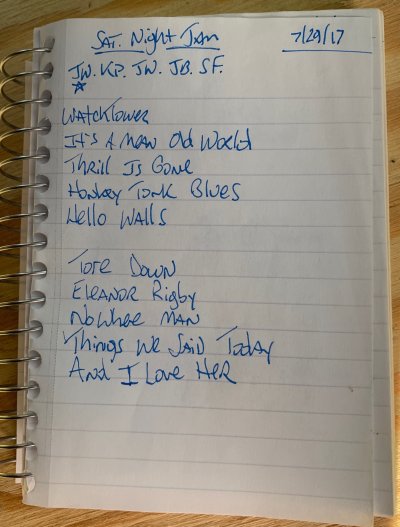 Sat. Night Jam 7/29/17
JW. KP. JW. JB. SF.
Watchtower
It's A Mean Old World
Thrill Is Gone
Honkey Tonk Blues
Hello Walls
Tore Down
Eleanor Rigby
Nowhee Man
Things We Said Today
And I Love Her